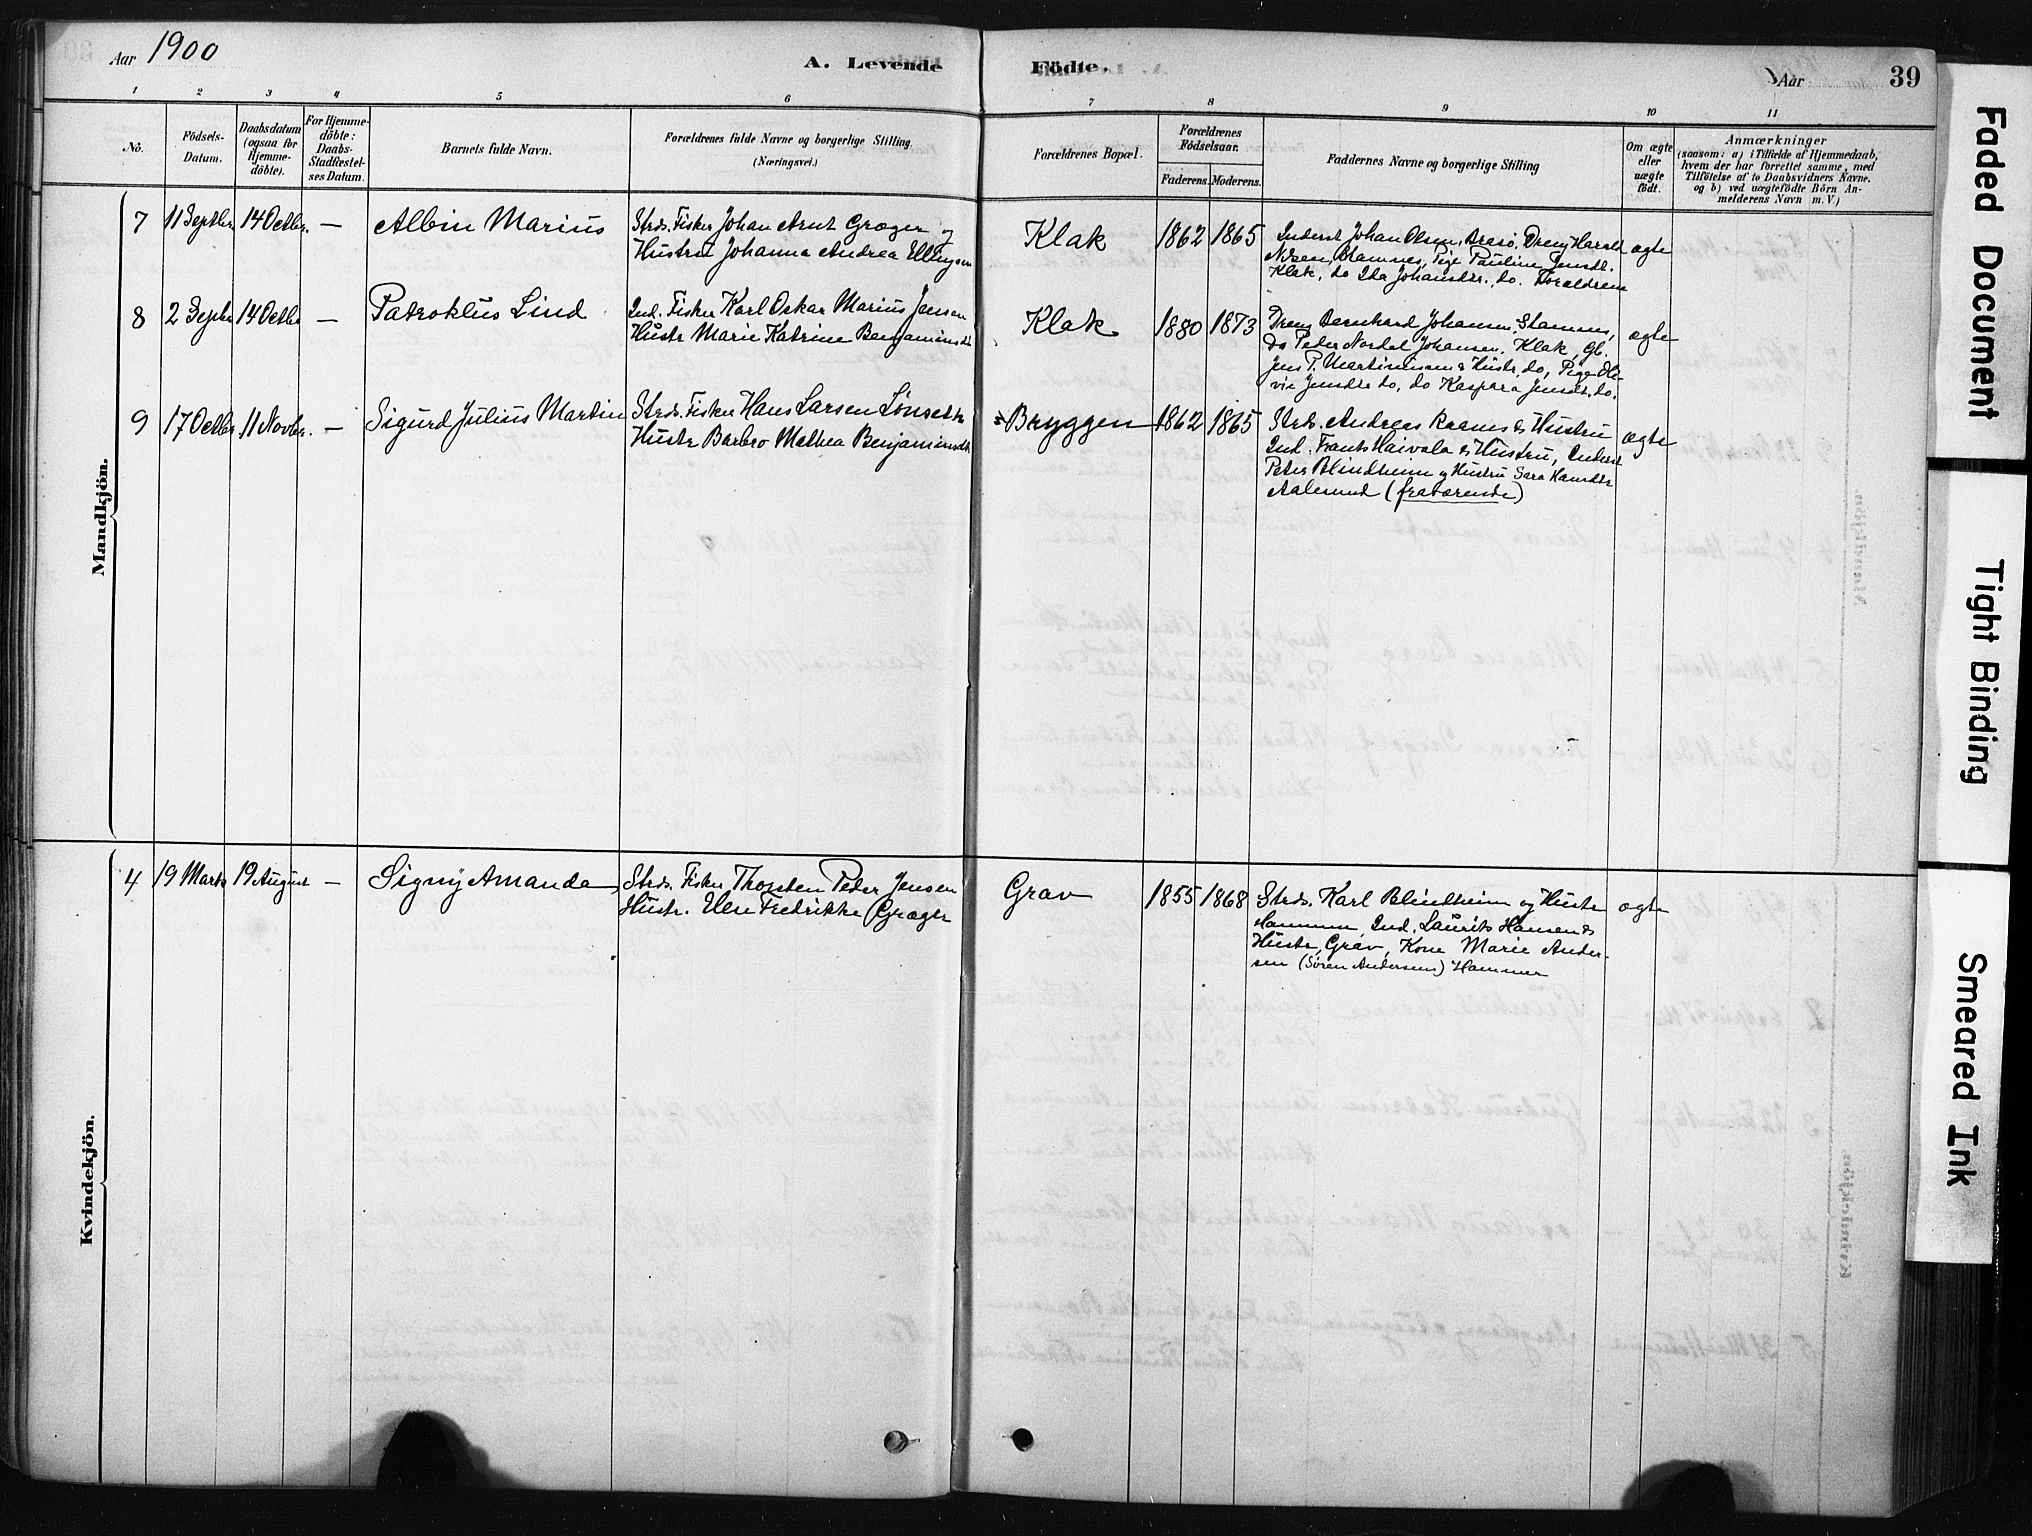 Aar 1900
A. Levende Födte.
Aar 39
1 2 3 4 5 6 7 8 9 10 11
No.
Födsels-
Datum.
Daabsdatum
(ogsaa for
Hjemme-
döbte).
For Hjemme-
döbte:
Daabs-
Stadfæstel-
ses Datum.
Barnets fulde Navn.
Forældrenes fulde Navne og borgerlige Stilling.
(Næringsvei.)
Forældrenes Bopæl.
Forældrenes
Födselsaar.
Faderens. Moderens.
Faddernes Navne og borgerlige Stilling
Om ægte
eller
uægte
födt.
Anmærkninger
(saasom: a) i Tilfælde af Hjemmedaab,
hvem der har forrettet samme, med
Tilföielse af to Daabsvidners Navne.
og b) ved uægtefödte Börn An-
melderens Navn m. V.)
Mandkjön.
7 11 Septbr. 14 Octbr. — Albin Marius
Strds. Fisker Johan Arnt Græger og
Hustru Johanna Andrea Ellingsen
Klak 1862 1865
Inderst Johan Olsen, Dreng Harald
Nilsen, Stamnes, Pige Pauline Jensdt.
Klak, do Ida Johansdtr. do. Forældrene
ægte
8 2 Septbr 14 Octbr — Patroklus Lind
Ind. Fisker Karl Oskar Marius Jensen
Hustr Marie Katrine Benjaminsdt
Klak 1880 1873
Dreng Bernhard Johansen, Stamnes,
do Peder Nordal Johansen, Klak, Gb.
Jens P. Martinussen & Hustr. do, Pige Oli-
vie Jensdtr do, do Kaspara Jensdt. do.
ægte
9 17 Octbr. 11 Novbr. — Sigurd Julius Martin
Strds. Fisker Hans Larsen Lønseth
Hustr Barbro Mathea Benjaminsdt
Bryggen 1862 1865
Strds. Andreas Raanes & Hustru
Ind. Frants Haivala & Hustru, Inderst
Peter Blindheim og Hustru Sara Hansdtr
Aalesund (fraværende)
ægte
Kvindekjön.
4 19 Marts 19 August — Signy Amanda
Strds. Fisker Thorsten Peder Jensen
Hustr. Else Fredrikke (Græger
Grav 1855 1868
Strds. Karl Blindheim og Hustr
Hammer, Ind. Laurits Hansen &
Hustr, Grav, Kone Marie Ander-
sen (Søren Andersens) Hammer
ægte
Faded Document
Tight Binding
Smeared Ink